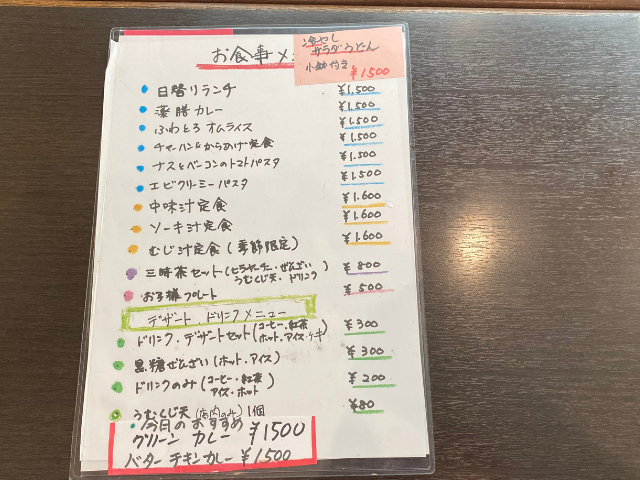 お食事メ
冷やし
サラダうどん
小鉢付き
¥1500
日替りランチ ¥1,500
薬膳カレー ¥1,500
ふわとろオムライス ¥1,500
チャーハン&からあげ定食 ¥1,500
ナスとベーコンのトマトパスタ ¥1,500
エビクリーミーパスタ ¥1,500
中味汁定食 ¥1,600
ソーキ汁定食 ¥1,600
むじ汁定食(季節限定) ¥1,600
三時茶セット(ヒラヤーチー・ぜんざい
うむくじ天・ドリンク) ¥800
お子様プレート ¥500
デザート.ドリンクメニュー
ドリンク・デザートセット(コーヒー・紅茶
ホット.アイス・ケーキ) ¥300
黒糖ぜんざい(ホット・アイス) ¥300
ドリンクのみ(コーヒー・紅茶
アイス・ホット) ¥200
うむくじ天(店内のみ)1個 ¥80
・今月のおすすめ
グリーンカレー ¥1500
バターチキンカレー ¥1500